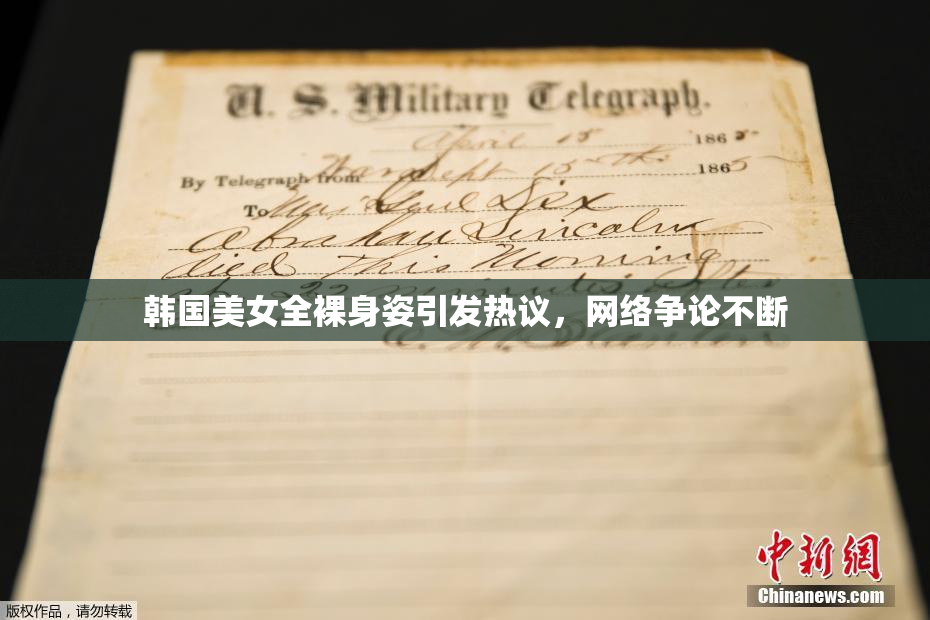 U. S. Military Telegraph.
April 15 1865
By Telegraph from War Dept 15th 1865
To Maj Genl Dix
Abraham Lincoln
died This Morning
at 22 minutes after
韩国美女全裸身姿引发热议，网络争论不断
中新网
Chinanews.com
版权作品，请勿转载